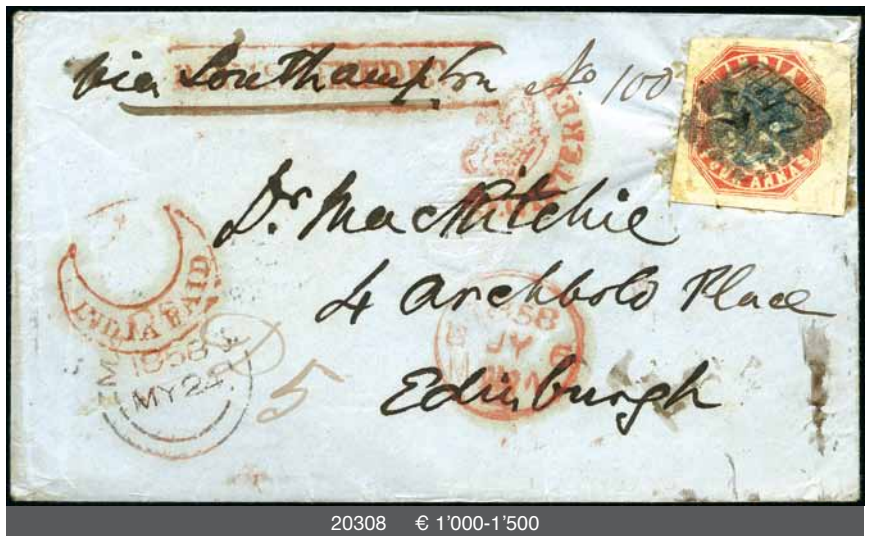 via Southampton No. 100
INDIA
FOUR ANNAS
Dr. MacRitchie
4 Archbold Place
Edinburgh
INDIA PAID
1858
MY 24
5
1858
JY 6
20308 € 1'000-1'500